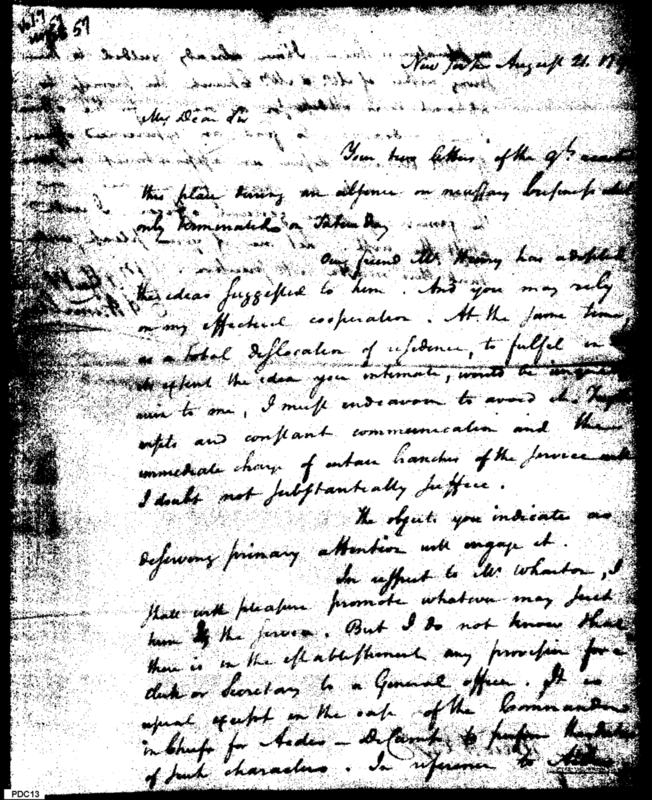 New York August 21. 17
My Dear Sir
Your two letters of the 9th
this place during an absence on necessary business which
only terminated on Saturday
Our friend Mc Henry has adopted
the ideas suggested to him. And you may rely
on my effectual cooperation. At the same time,
as a total dislocation of residence, to fulfil in
its extent the idea you intimate, would be
to me, I must endeavour to avoid it.
and constant communication and the
immediate charge of certain branches of the service will
I doubt not substantially suffice.
The objects you indicate as
deserving primary attention will engage it.
In respect to Mr Wharton, I
shall with pleasure promote whatever may suit
him the service. But I do not know that
there is in the establishment any provision for a
clerk or Secretary to a General officer. It is
usual except in the case of the Commander
in Chief for Aides-De Camp to perform the duties
of such characters. In reference to
PDC13